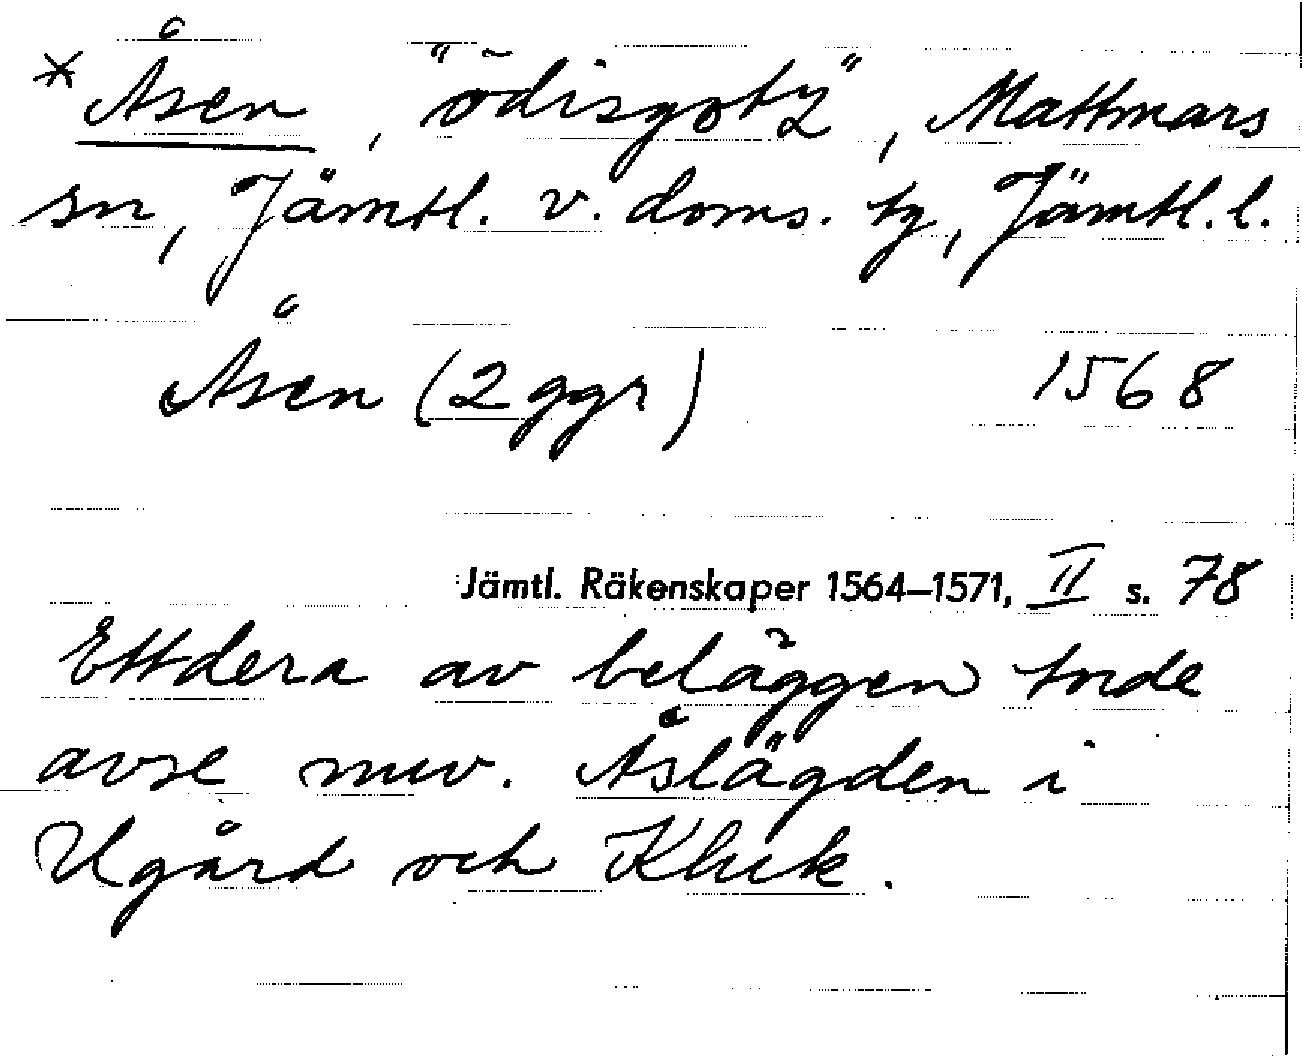 *Åsen, "ödisgotz", Mattmars
sn, Jämtl. v. doms. tg, Jämtl. l.
Åsen (2 ggr) 1568
Jämtl. Räkenskaper 1564–1571, II s. 78
Ettdera av beläggen torde
avse nuv. Åslägden i
Ugård och Kluk.